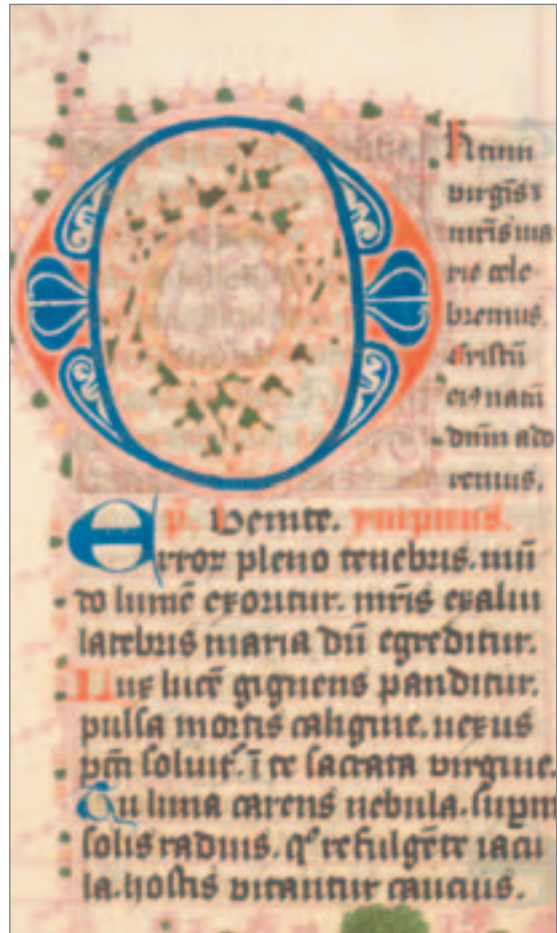 O
ritum
virgīs ꝛ
mr̄is ma
rie cele
bremus.
cristū
eiꝰ natū
dn̄m ado
remus.
p̄. Venite. ympnus.
Error pleno tenebris. mū
to lumē exoritur. mr̄is ex aluī
latebris maria dū egreditur.
Lux lucē gignens panditur.
pulsa mortis caligine. nexus
solvit. ī te sacrata virgine.
Tu luna carens nebula. supm
solis radius. refulgēte iacu
la. hostis vitantur caucius.